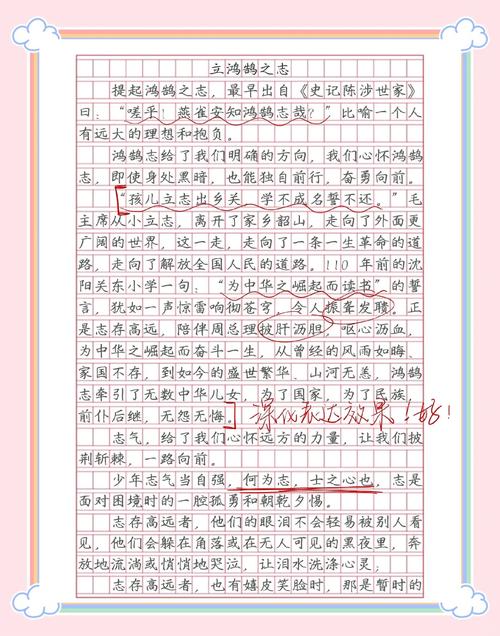 立鸿鹄之志
提起鸿鹄之志，最早出自《史记陈涉世家》
曰：“嗟乎！燕雀安知鸿鹄志哉？”比喻一个人
有远大的理想和抱负。
鸿鹄志给了我们明确的方向，我们心怀鸿鹄
志，即使身处黑暗，也能独自前行，奋勇向前。
“孩儿立志出乡关，学不成名誓不还。”毛
主席从小立志，离开了家乡韶山，走向了外面更
广阔的世界，这一走，走向了一条一生革命的道
路，走向了解放全国人民的道路。110年前的沈
阳关东小学一句：“为中华之崛起而读书”的誓
言，犹如一声惊雷响彻苍穹，令人振聋发聩。正
是志存高远，陪伴周总理披肝沥胆，呕心沥血，
为中华之崛起而奋斗一生，从曾经的风雨如晦、
家国不存，到如今的盛世繁华、山河无恙，鸿鹄
志牵引了无数中华儿女，为了国家，为了民族，
前仆后继，无怨无悔。
深化表达效果！好！
志气，给了我们心怀远方的力量，让我们披
荆斩棘，一路向前。
少年志气当自强，何为志，士之心也，志是
面对困境时的一腔孤勇和朝乾夕惕。
志存高远者，他们的眼泪不会轻易被别人看
见，他们会躲在角落或在无人可见的黑夜里，奔
放地流淌或悄悄地哭泣，让泪水洗涤心灵；
志存高远者，也有嬉皮笑脸时，那是暂时的